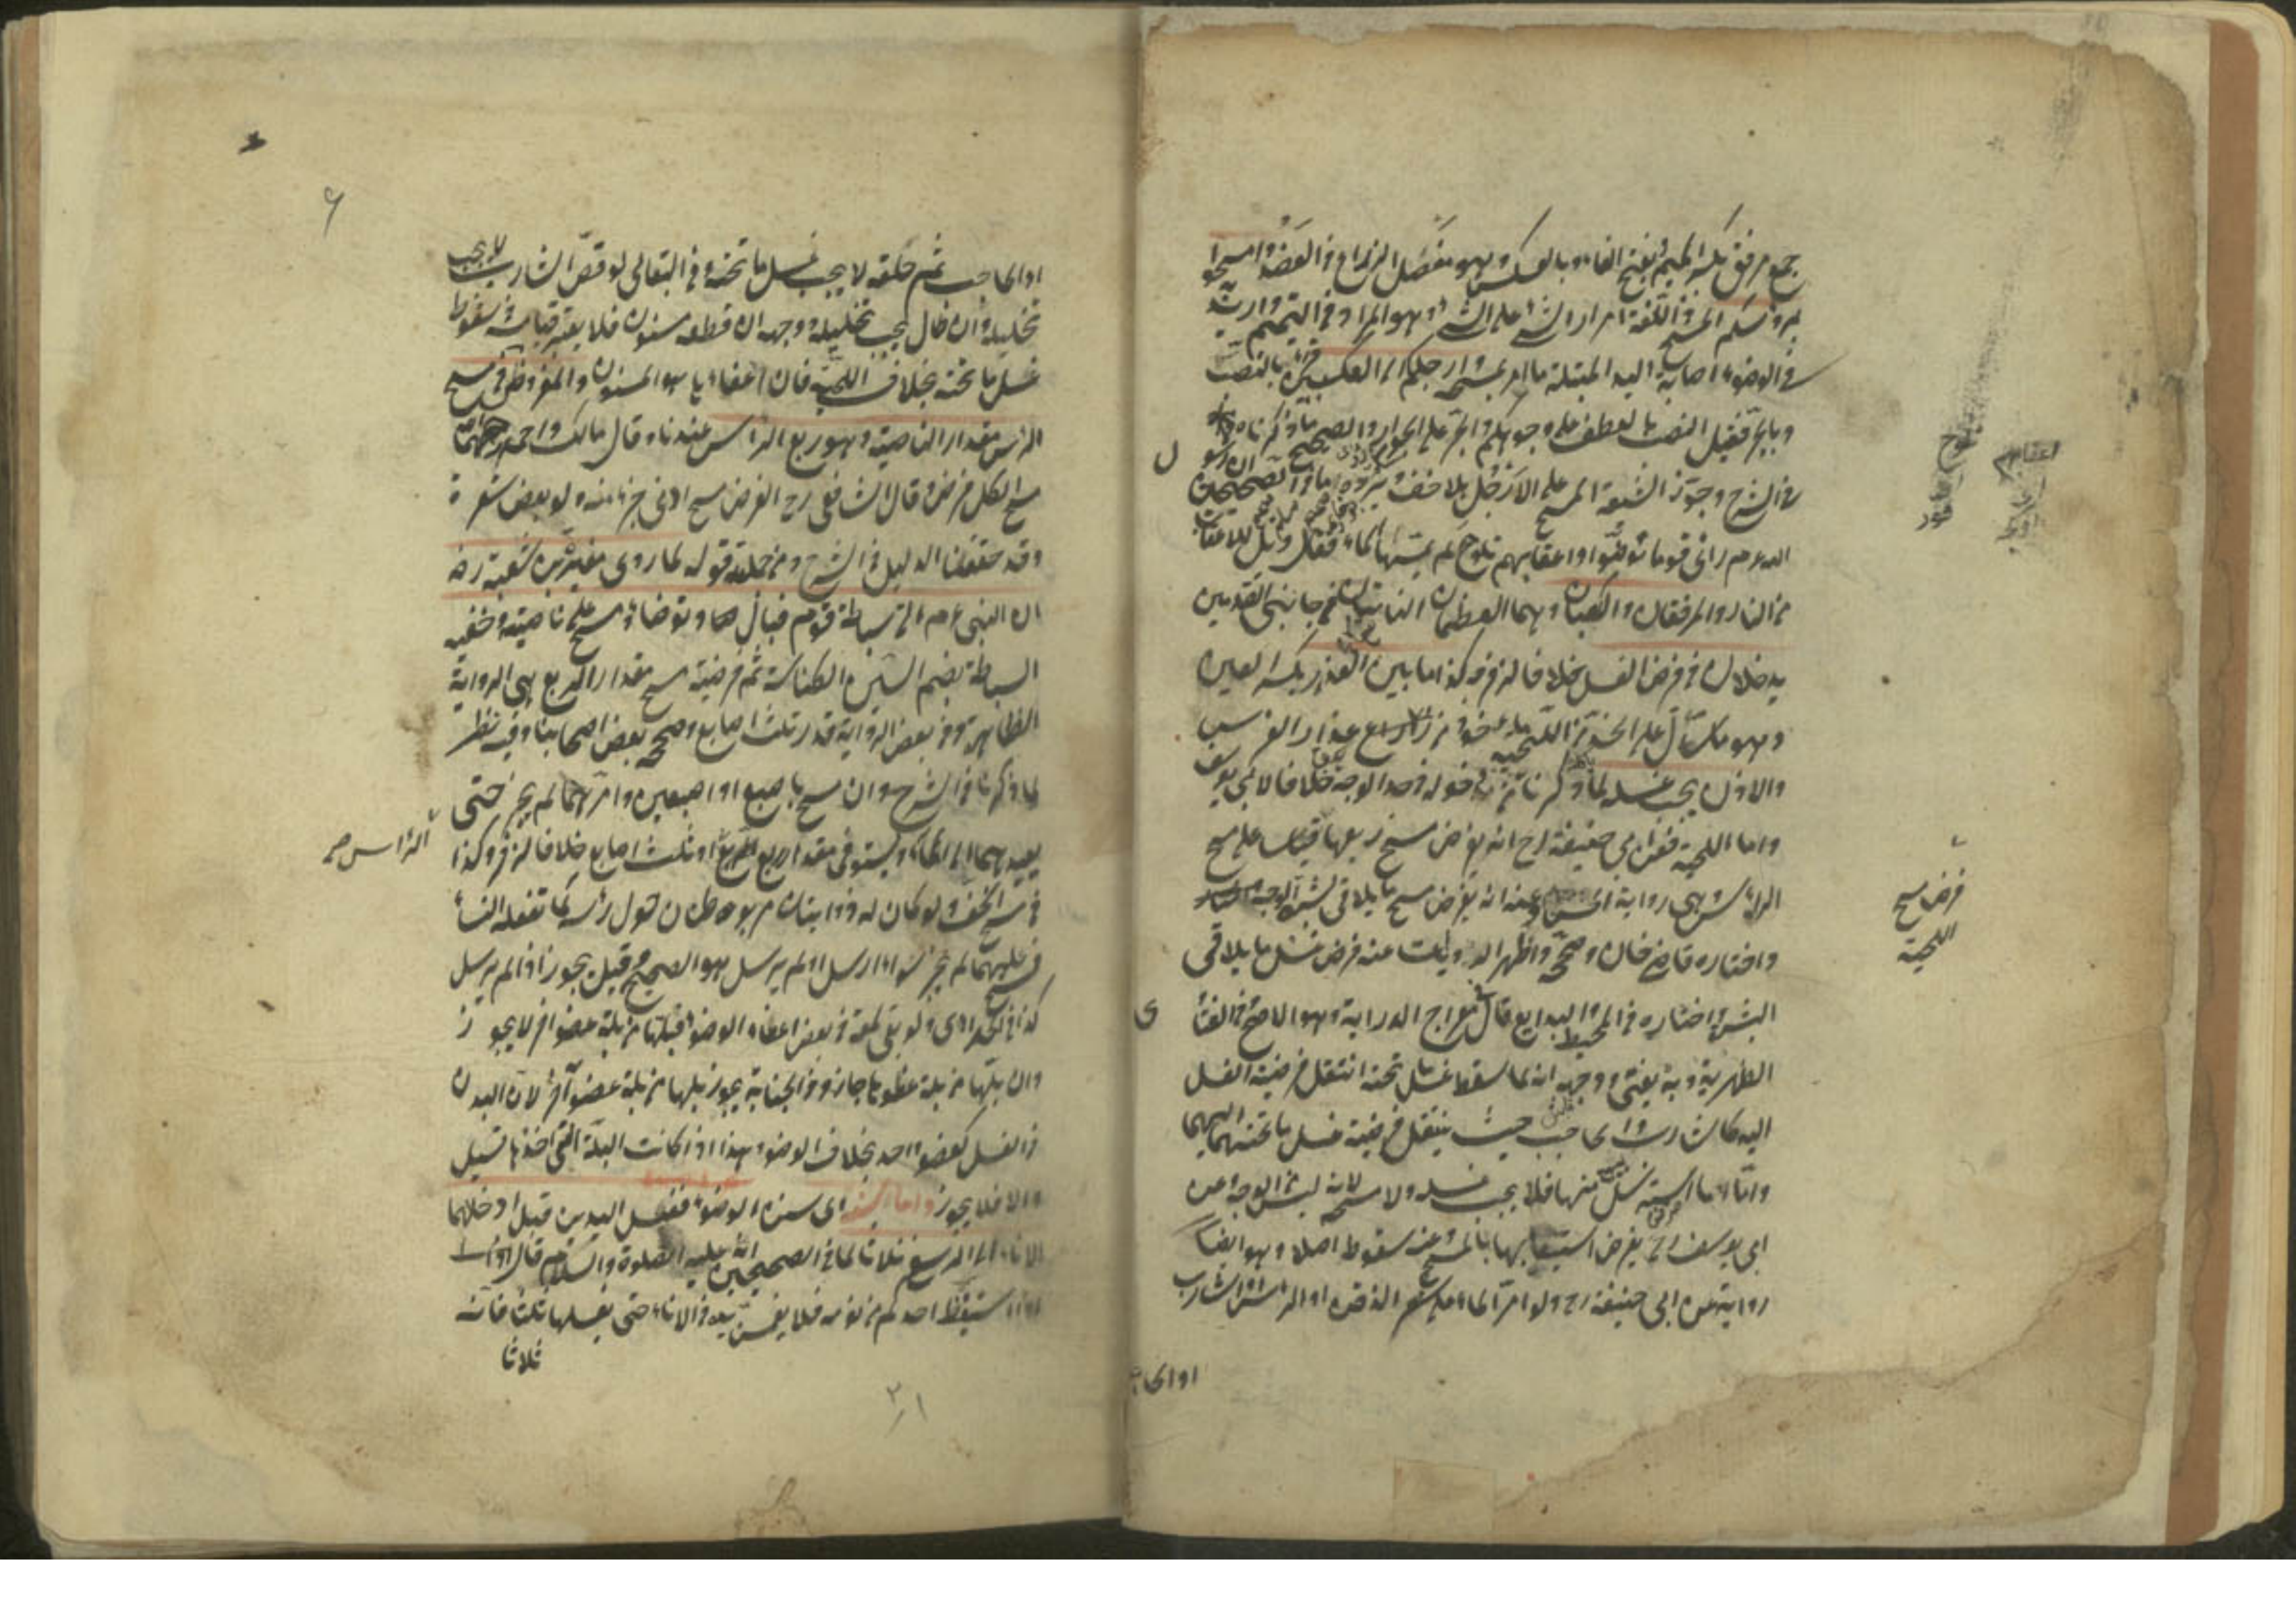 جمع مرفق بكسر الميم وفتح الفاء وبالعكس وهو مفصل الذراع والعضد وامسحوا
برؤسكم المسح في اللغة امرار الشئ على الشئ وهو المراد في التيمم واريد
في الوضوء اصابة اليد المبتلة ما امر بمسحه وارجلكم الى الكعبين قرئ بالنصب
وبالجر فقيل النصب بالعطف على وجوهكم والجر على الجوار والصحيح ما ذكرناه
في الشرح وجوز الشيعة المسح على الارجل بلا خف يرده ما في الصحيحين ان رسول
الله عم رأى قوما توضؤا واعقابهم تلوح لم يمسها الماء فقال ويل للاعقاب
من النار والمرفقان والكعبان وهما العظمان الناتئان من جانبي القدمين
يدخلان في فرض الغسل خلافا لزفر وكذا ما بين العذار بكسر العين
وهو ما سال على الخد من اللحية مأخوذ من عذار الفرس
والاذن يجب غسله لما ذكرنا من دخوله في حد الوجه خلافا لابي يوسف
واما اللحية فعن ابي حنيفة رح انه يفرض مسح ربعها قياسا على مسح
الرأس وهي رواية الحسن وعنه انه يفرض مسح ما يلاقي بشرة الوجه
واختاره قاضيخان وصححه واظهر الروايات عنه فرض غسل ما يلاقي
البشرة اختاره في المحيط والبدايع قال في معراج الدراية وهو الاصح في الفتاوى
الظهيرية وبه يفتى ووجهه انه لما سقط غسل ما تحته انتقل فرضية الغسل
اليه كالشارب والحاجب حيث ينتقل فرضية غسل ما تحتهما اليهما
واما ما استرسل منها فلا يجب غسله ولا مسحه لانه ليس من الوجه وعن
ابي يوسف رح يفرض استيعابها بالمسح وعنه سقوطه اصلا وهو ايضا
رواية عن ابي حنيفة رح ولو امر الماء على شعر الذقن او الرأس او الشارب
اوالحا
فرض مسح
اللحية
٦
او الحاجب ثم حلقه لا يجب غسل ما تحته وفي البقالي لو قص الشارب لا يجب
تخليله وان طال يجب تخليله ووجهه ان قطعه مسنون فلا يعتبر قيامه في سقوط
غسل ما تحته بخلاف اللحية فان اعفاءها هو المسنون والمفروض في مسح
الرأس مقدار الناصية وهو ربع الرأس عندنا وقال مالك واحمد رحمهما الله
مسح الكل فرض وقال الشافعي رح الفرض مسح ادنى جزء منه ولو بعض شعرة
وقد حققنا الدليل في الشرح ومن جملته قوله لما روى مغيرة بن شعبة رض
ان النبي عم اتى سباطة قوم فبال وتوضأ ومسح على ناصيته وخفيه
السباطة بضم السين الكناسة ثم فرضية مسح مقدار الربع هي الرواية
الظاهرة وفي بعض الرواية قدر ثلث اصابع وصححه بعض اصحابنا وفيه نظر
لما ذكرنا في الشرح وان مسح باصبع او اصبعين وامرهما لم يجز حتى
يعيدهما الى الماء ويستوفي مقدار ربع الرأس او ثلث اصابع خلافا لزفر وكذا
في مسح الخف ولو كان له ذؤابتان مربوطتان حول رأسه كما تفعله النساء
فمسح عليهما لم يجز سواء ارسل او لم يرسل هو الصحيح وقيل يجوز اذا لم يرسل
كذا في الحدادي ولو بقي لمعة في بعض اعضاء الوضوء فبلها من بلة عضو آخر لا يجوز
وان بلها من بلة عضوها جاز وفي الجنابة يجوز بلها من بلة عضو آخر لان البدن
في الغسل كعضو واحد بخلاف الوضوء وهذا اذا كانت البلة التي اخذها تسيل
والا فلا يجوز واما سننه اى سنن الوضوء فغسل اليدين قبل ادخالهما
الاناء الى الرسغ ثلاثا لما في الصحيحين انه عليه الصلوة والسلام قال
اذا استيقظ احدكم من نومه فلا يغمس يده في الاناء حتى يغسلها ثلثا فانه
ثلاثا
الرأس صح